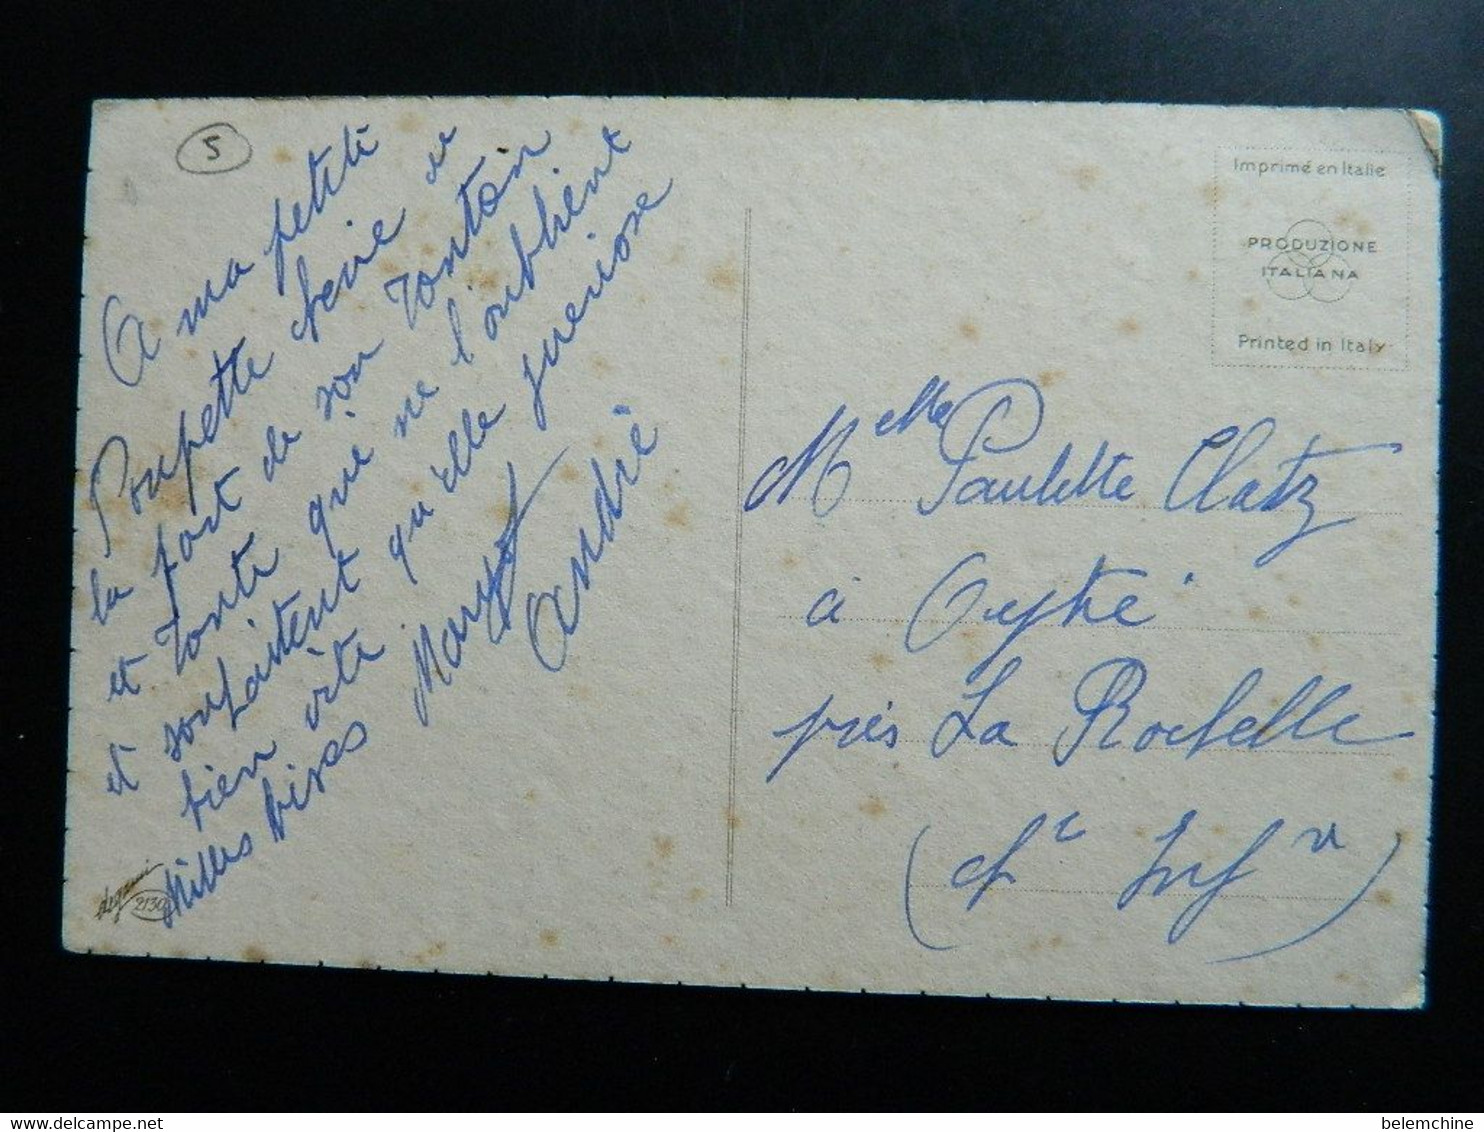 5
A ma petite
Poupette chérie
la part de son Tonton
et Tante que ne l'oublient
et souhaitent qu'elle guerisse
bien vite
Milles bises Margot
André
Degami
2130
Imprimé en Italie
PRODUZIONE
ITALIANA
Printed in Italy
Melle Paulette Clatz
à Aytré
près La Rochelle
(Ch te Infre)
belemchine